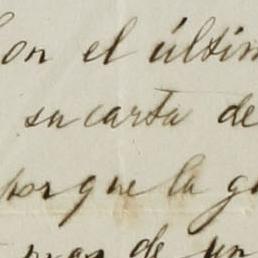 con el últim
su carta de
porque la g
mas de un